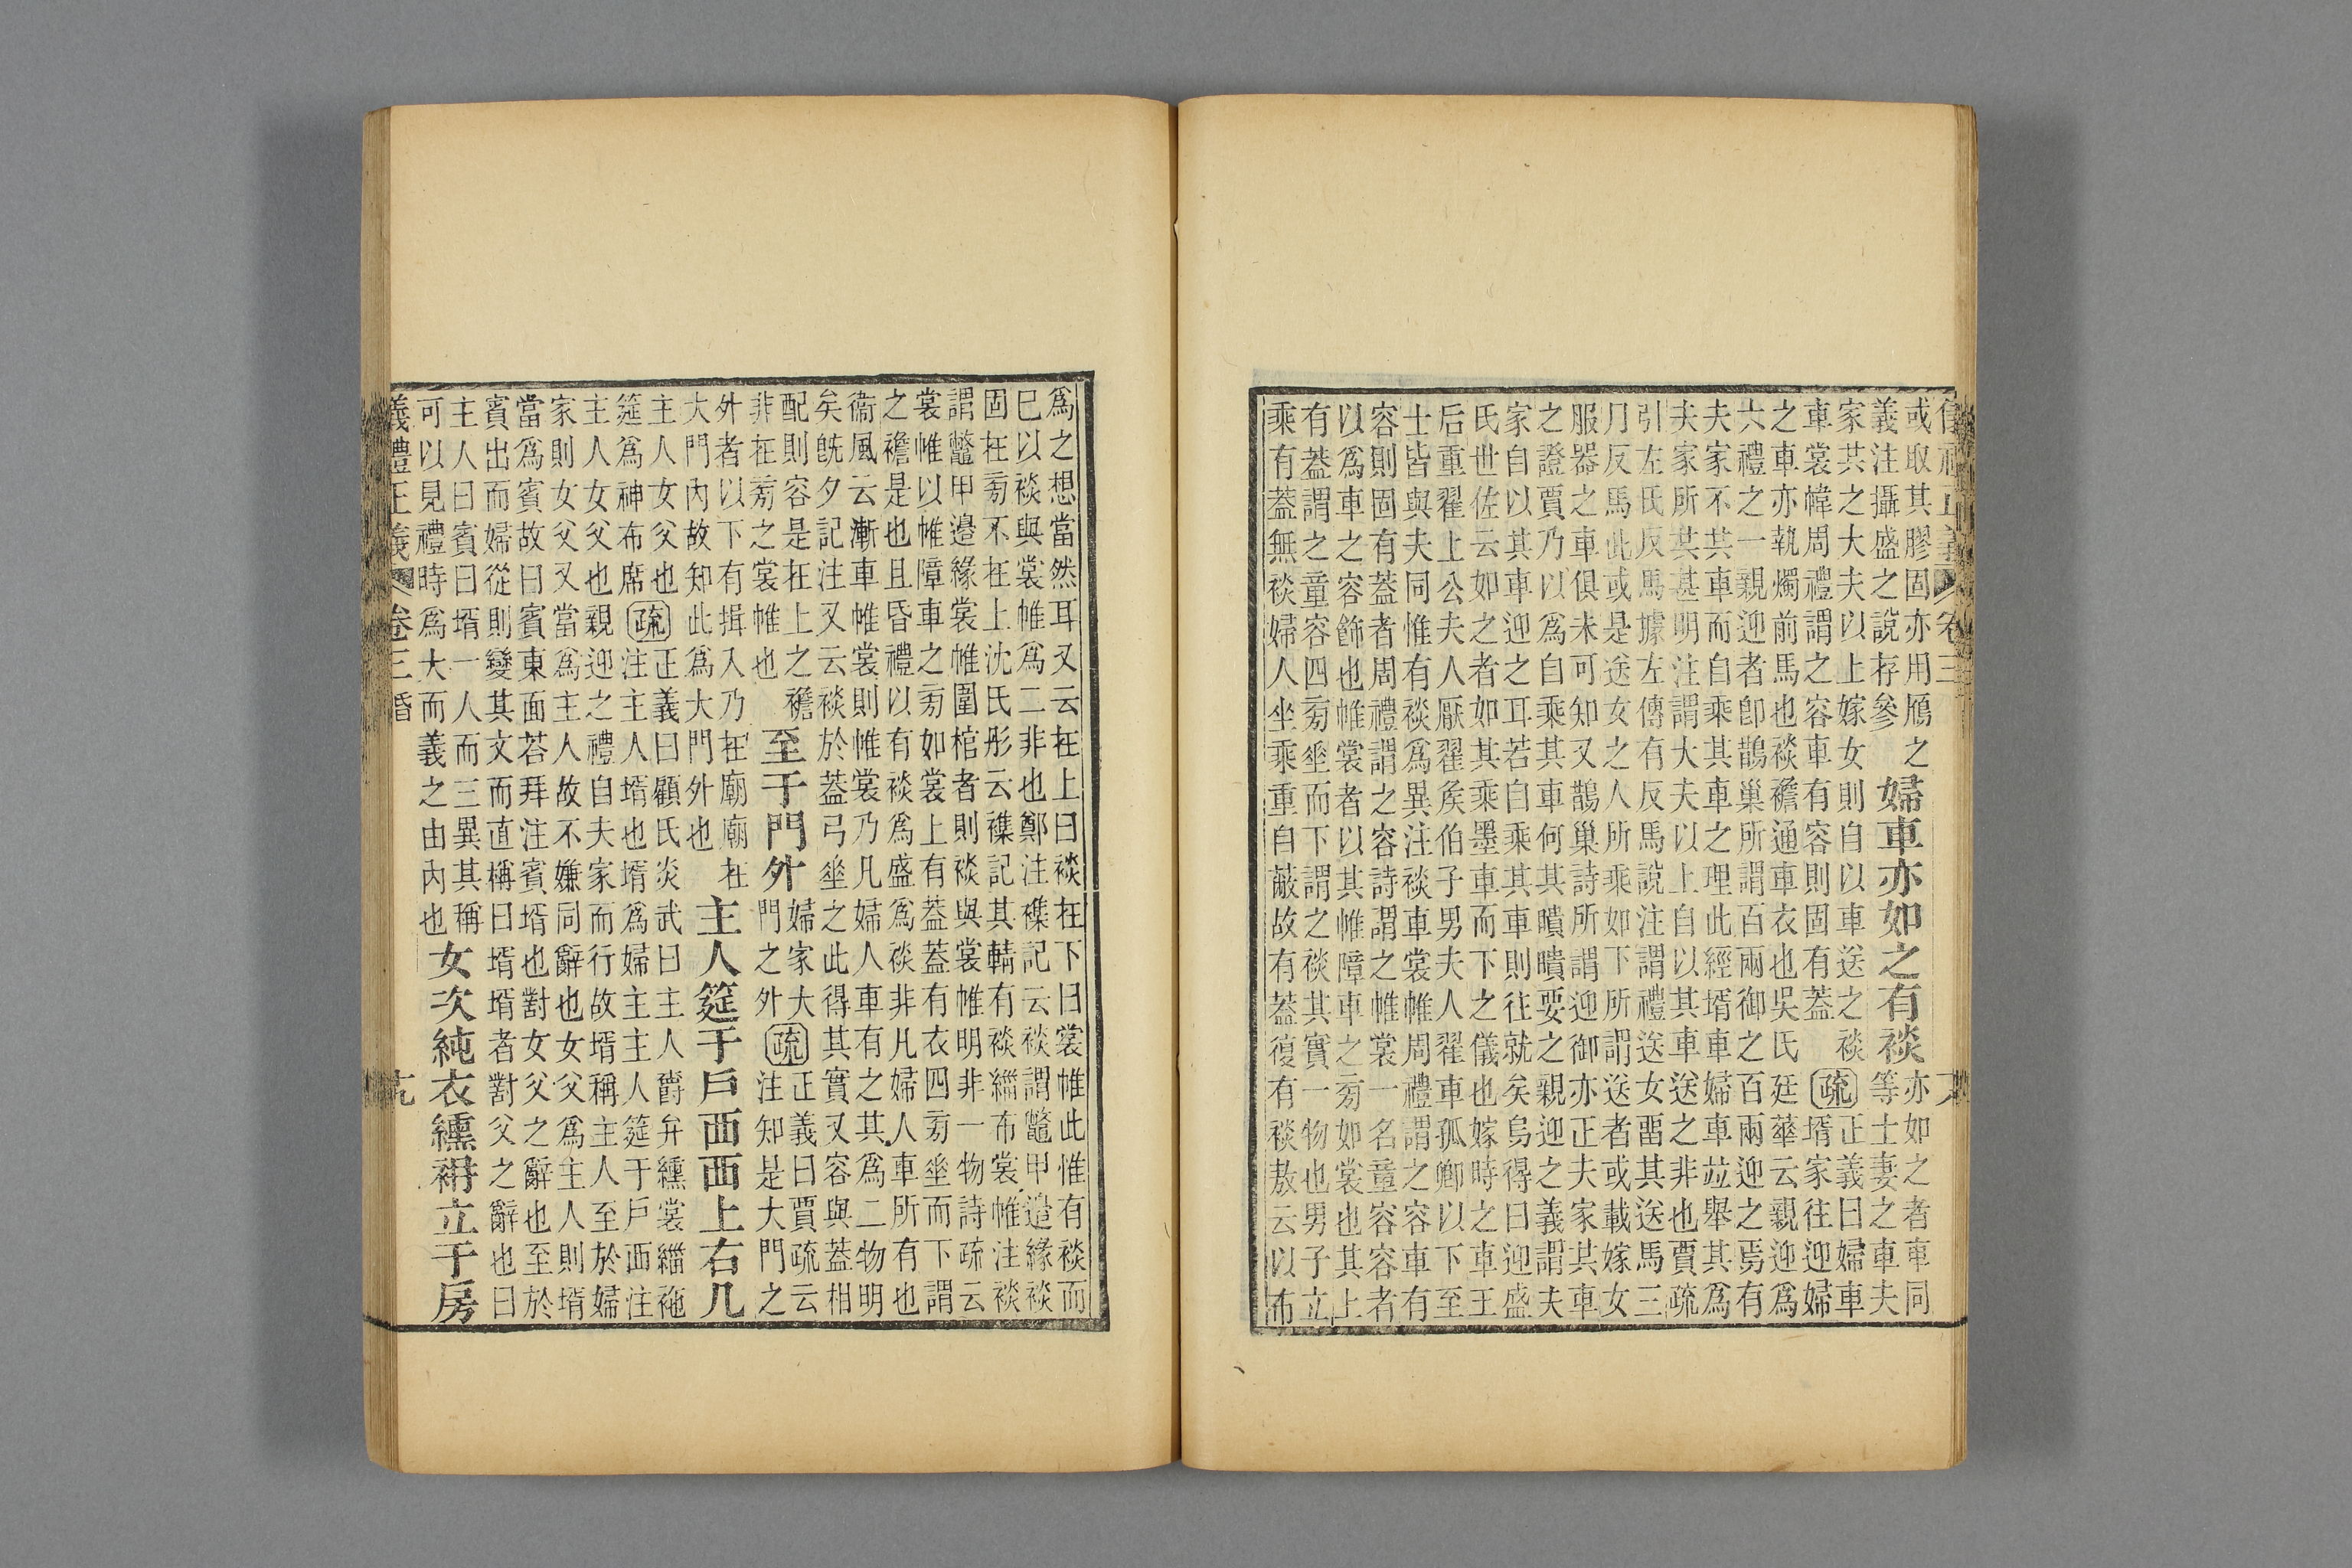 儀禮正義 卷三
或取其膠固亦用鴈之
義注攝盛之說存參
婦車亦如之有裧
亦如之者車同
等士妻之車夫
家共之大夫以上嫁女則自以車送之裧
車裳幃周禮謂之容車有容則固有蓋
疏
正義曰婦車
壻家往迎婦
之車亦執燭前馬也裧襜通車衣也吳氏廷華云親迎爲
六禮之一親迎者卽鵲巢所謂百兩御之百兩迎之焉有
夫家不共車而自乘其車之理此經壻車婦車並舉其爲
夫家所共甚明注謂大夫以上自以其車送之非也賈疏
引左氏反馬據左傳有反馬說注謂禮送女畱其送馬三
月反馬此或是送女之人所乘如下所謂送者或載嫁女
服器之車俱未可知又鵲巢詩所謂迎御亦正夫家共車
之證賈乃以爲自乘其車何其瞶瞶要之親迎之義謂夫
家自以其車迎之耳若自乘其車則往就矣烏得曰迎盛
氏世佐云如之者如其乘墨車而下之儀也嫁時之車王
后重翟上公夫人厭翟矦伯子男夫人翟車孤卿以下至
士皆與夫同惟有裧爲異注裧車裳帷周禮謂之容車有
容則固有蓋者周禮謂之容詩謂之帷裳一名童容容者
以爲車之容飾也帷裳者以其帷障車之旁如裳也其上
有蓋謂之童容四旁垂而下謂之裧其實一物也男子立
乘有蓋無裧婦人坐乘重自蔽故有蓋復有裧敖云以布
爲之想當然耳又云在上曰裧在下曰裳帷此惟有裧而
已以裧與裳帷爲二非也鄭注襍記云裧謂鼈甲邊緣裧
固在旁不在上沈氏彤云襍記其輤有裧緇布裳帷注裧
謂鼈甲邊緣裳帷圍棺者則裧與裳帷明非一物詩疏云
裳帷以帷障車之旁如裳上有蓋蓋有衣四旁垂而下謂
之襜是也且昏禮以有裧爲盛爲裧非凡婦人車所有也
衞風云漸車帷裳則帷裳乃凡婦人車有之其爲二物明
矣旣夕記注又云裧於蓋弓垂之此得其實又容與蓋相
配則容是在上之襜
非在旁之裳帷也
至于門外
婦家大
門之外
疏
正義曰賈疏云
注知是大門之
外者以下有揖入乃在廟廟在
大門內故知此爲大門外也
主人筵于戶西西上右几
主人女父也
筵爲神布席
疏
正義曰顧氏炎武曰主人爵弁纁裳緇袘
注主人壻也壻爲婦主主人筵于戶西注
主人女父也親迎之禮自夫家而行故壻稱主人至於婦
家則女父又當爲主人故不嫌同辭也女父爲主人則壻
當爲賓故曰賓東面荅拜注賓壻也對女父之辭也至於
賓出而婦從則變其文而直稱曰壻壻者對父之辭也曰
主人曰賓曰壻一人而三異其稱
可以見禮時爲大而義之由內也
女次純衣纁袡立于房
義禮正義 卷三 婚